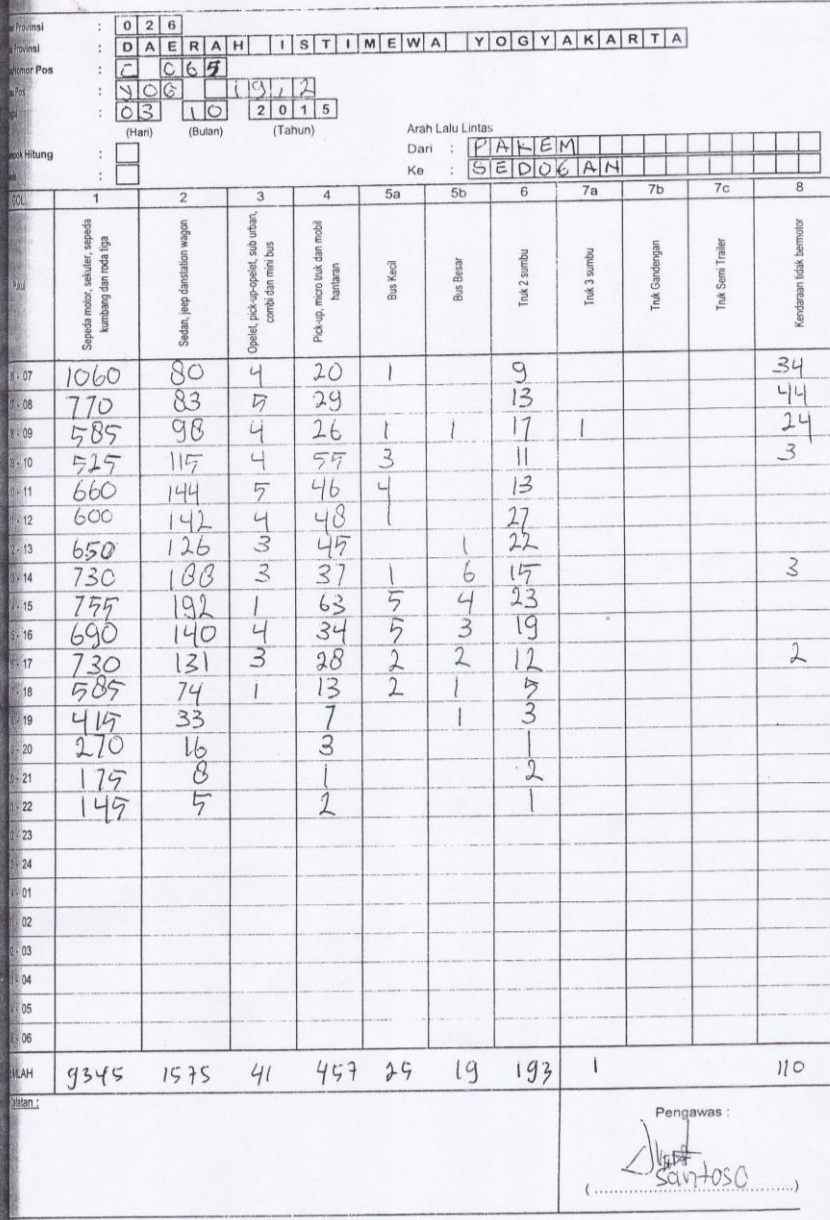 Provinsi : 026
Provinsi : DAERAH ISTIMEWA YOGYAKARTA
Nomor Pos : C C65
Pos : YOG 19,2
: 03 10 2015
(Hari) (Bulan) (Tahun)
Arah Lalu Lintas
Dari : PAKEM
Hitung :
Ke : SEDOGAN
GOL. 1 2 3 4 5a 5b 6 7a 7b 7c 8
Sepeda motor, sekuter, sepeda kumbang dan roda tiga
Sedan, jeep danstation wagon
Opelet, pick-up-opelet, sub urban, combi dan mini bus
Pick-up, micro truk dan mobil hantaran
Bus Kecil
Bus Besar
Truk 2 sumbu
Truk 3 sumbu
Truk Gandengan
Truk Semi Trailer
Kendaraan tidak bermotor
- 07 1060 80 4 20 1 9 34
- 08 770 83 5 29 13 44
- 09 585 98 4 26 1 1 17 1 24
- 10 525 115 4 55 3 11 3
- 11 660 144 5 46 4 13
- 12 600 142 4 48 1 27
- 13 650 126 3 45 1 22
- 14 730 188 3 37 1 6 15 3
- 15 755 192 1 63 5 4 23
- 16 690 140 4 34 5 3 19
- 17 730 131 3 28 2 2 12 2
- 18 585 74 1 13 2 1 5
- 19 415 33 7 1 3
- 20 270 16 3 1
- 21 175 8 1 2
- 22 145 5 2 1
- 23
- 24
- 01
- 02
- 03
- 04
- 05
- 06
MLAH 9345 1575 41 457 25 19 193 1 110
atatan :
Pengawas :
santoso
(..............................)